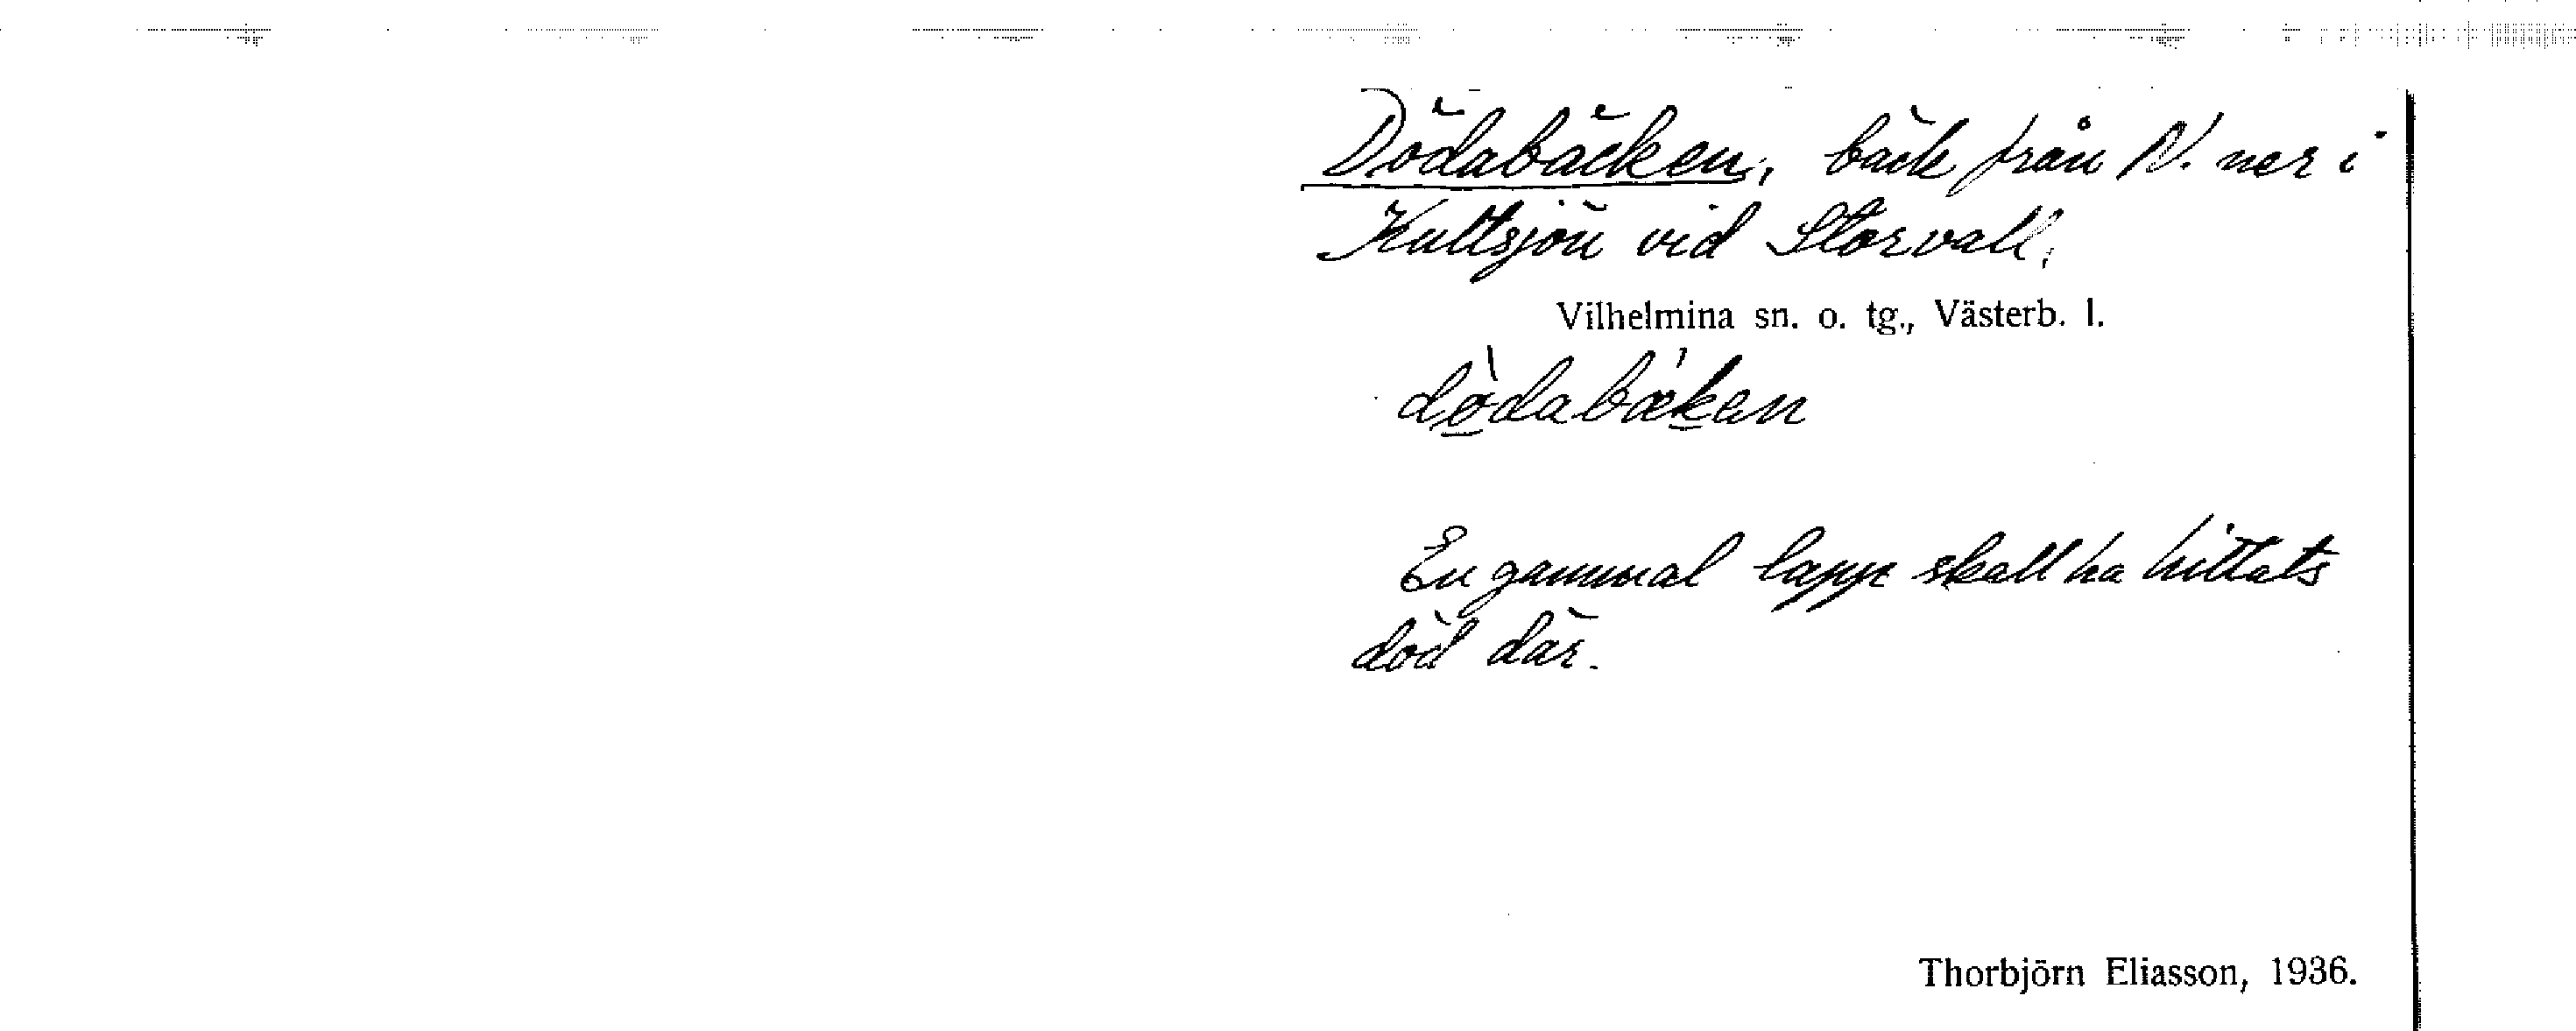 Dödabäcken, bäck från N. ner i
Kultsjön vid Storvall,
Vilhelmina sn. o. tg., Västerb. l.
dö̀dabǽken
En gammal lapp skall ha hittats
död där.
Thorbjörn Eliasson, 1936.